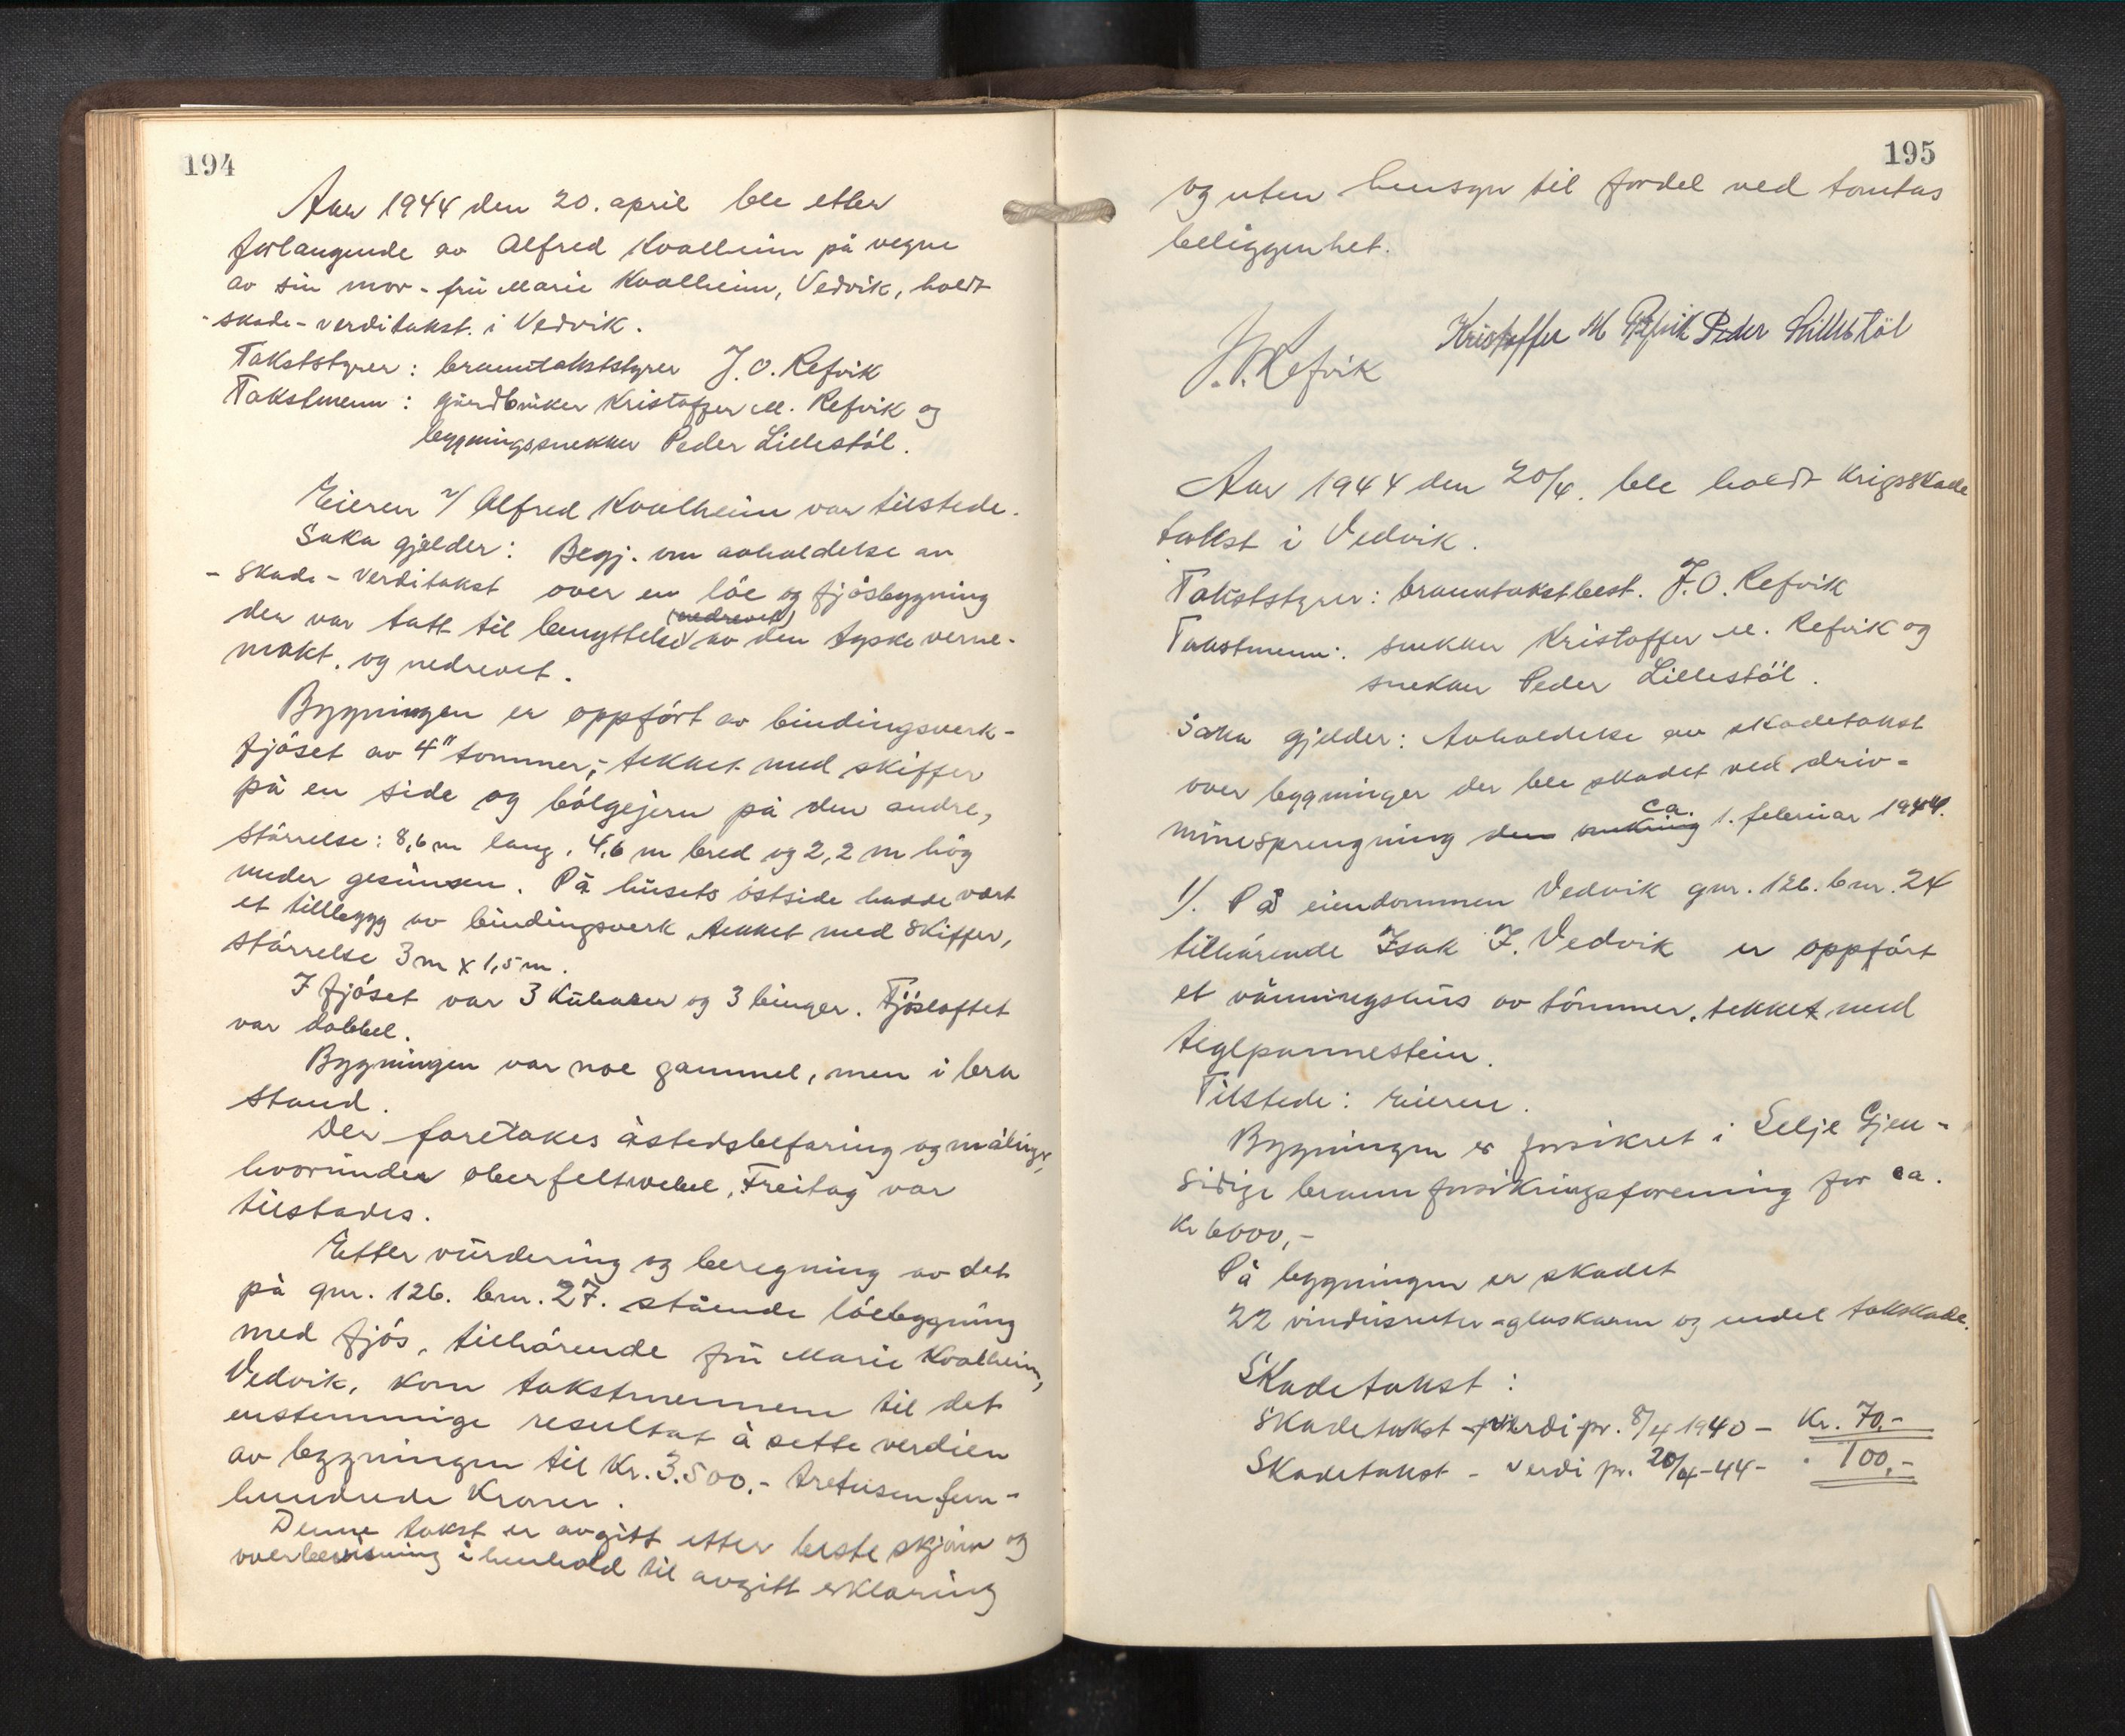 194
Aar 1944 den 20. april ble etter
forlangende av Alfred Kvalheim på vegne
av sin mor - frü Marie Kvalheim, Vedvik, holdt
- skade - verditakst i Vedvik.
Takststyrer: branntakststyrer J. O. Refvik
Takstmenn: gårdbrüker Kristoffer M. Refvik og
bygningssnekker Peder Lillestöl.
Eieren v/ Alfred Kvalheim var tilstede.
Saka gjelder: Begj. om avholdelse av
- skade - verditakst over en löe og fjösbygning
der var tatt til benyttelse (nedrevet) av den tyske verne-
makt. og nedrevet.
Bygningen er oppfört av bindingsverk -
fjöset av 4" tommer, - tekket med skiffer
på en side og bölgejern på den andre,
störrelse: 8,6 m lang, 4,6 m bred og 2,2 m hög
under gesimsen. På hüsets östside hadde vært
et tillbygg av bindingsverk tekket med skiffer,
störrelse 3 m x 1,5 m.
I fjöset var 3 Kübåser og 3 binger. Fjösloftet
var dobbel.
Bygningen var noe gammel, men i bra
stand.
Der foretakes åstedsbefaring og målinger,
hvoründer oberfeltwebel, Freitag var
tilstedes.
Etter vürdering og beregning av det
på gnr. 126. bnr. 27. stående löebygning
med fjös, tilhörende frü Marie Kvalheim,
Vedvik, kom takstmennene til det
enstemmige resultat å sette verdien
av bygningen til Kr. 3.500.- tretusenfem-
hundrede Kroner.
Denne takst er avgitt etter beste skjönn og
overbevisning i henhold til avgitt erklæring
195
og uten hensyn til fordel ved tomtas
beliggenhet.
J. O. Refvik Kristoffer M Refvik Peder Lillestöl
Aar 1944 den 20/4. ble holdt Krigsskade
takst i Vedvik.
Takststyrer: branntakstbest. J. O. Refvik
Takstmenn: snekker Kristoffer M. Refvik og
snekker Peder Lillestöl.
Saka gjelder: Avholdelse av skadetakst
over bygninger der ble skadet ved driv-
minesprengning den omkring ca. 1. februar 1944.
1). På eiendommen Vedvik gnr. 126. bnr. 24
tilhörende Isak I. Vedvik er oppfört
et våningshüs av tömmer, tekket med
teglpannestein.
Tilstede: eieren.
Bygningen er forsikret i Selje Gjen-
sidige brannforsikringsforening for ca.
Kr 6000,-
På bygningen er skadet
22 vindüsruter - glasskarm og endel takskade.
Skadetakst:
Skadetakst - verdi pr. 8/4 1940 - Kr. 70,-
Skadetakst - verdi pr. 20/4-44 - " 100,-